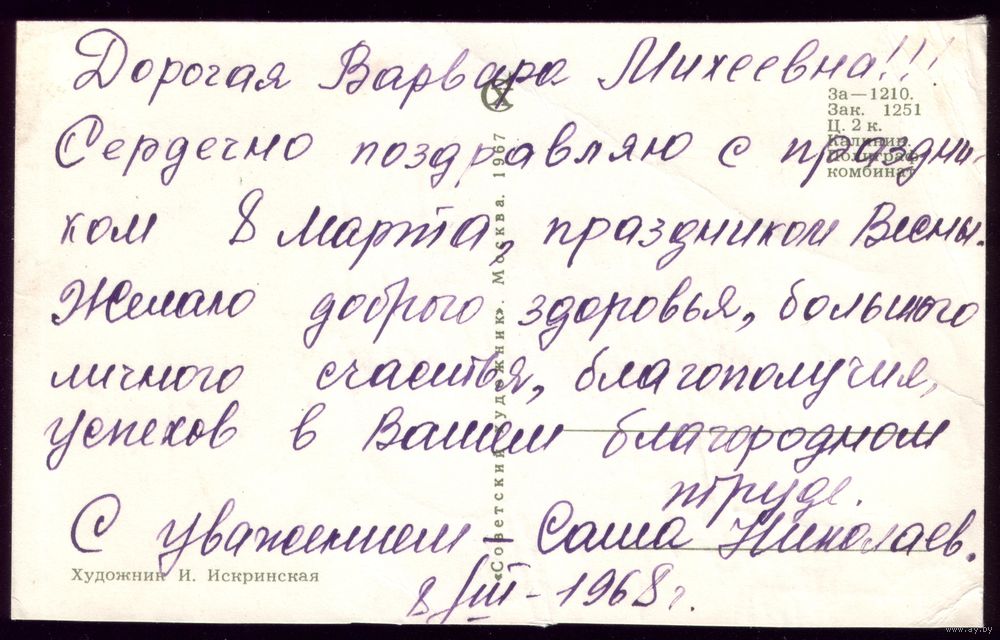 Дорогая Варвара Михеевна!!!
За—1210.
Зак. 1251
Ц. 2 к.
Калинин.
Полиграф-
комбинат
Сердечно поздравляю с праздни-
ком 8 Марта, праздником Весны.
Желаю доброго здоровья, большого
личного счастья, благополучия,
успехов в Вашем благородном
труде.
С уважением – Саша Николаев.
8/III - 1968 г.
«Советский художник». Москва. 1967
Художник И. Искринская
www.ay.by